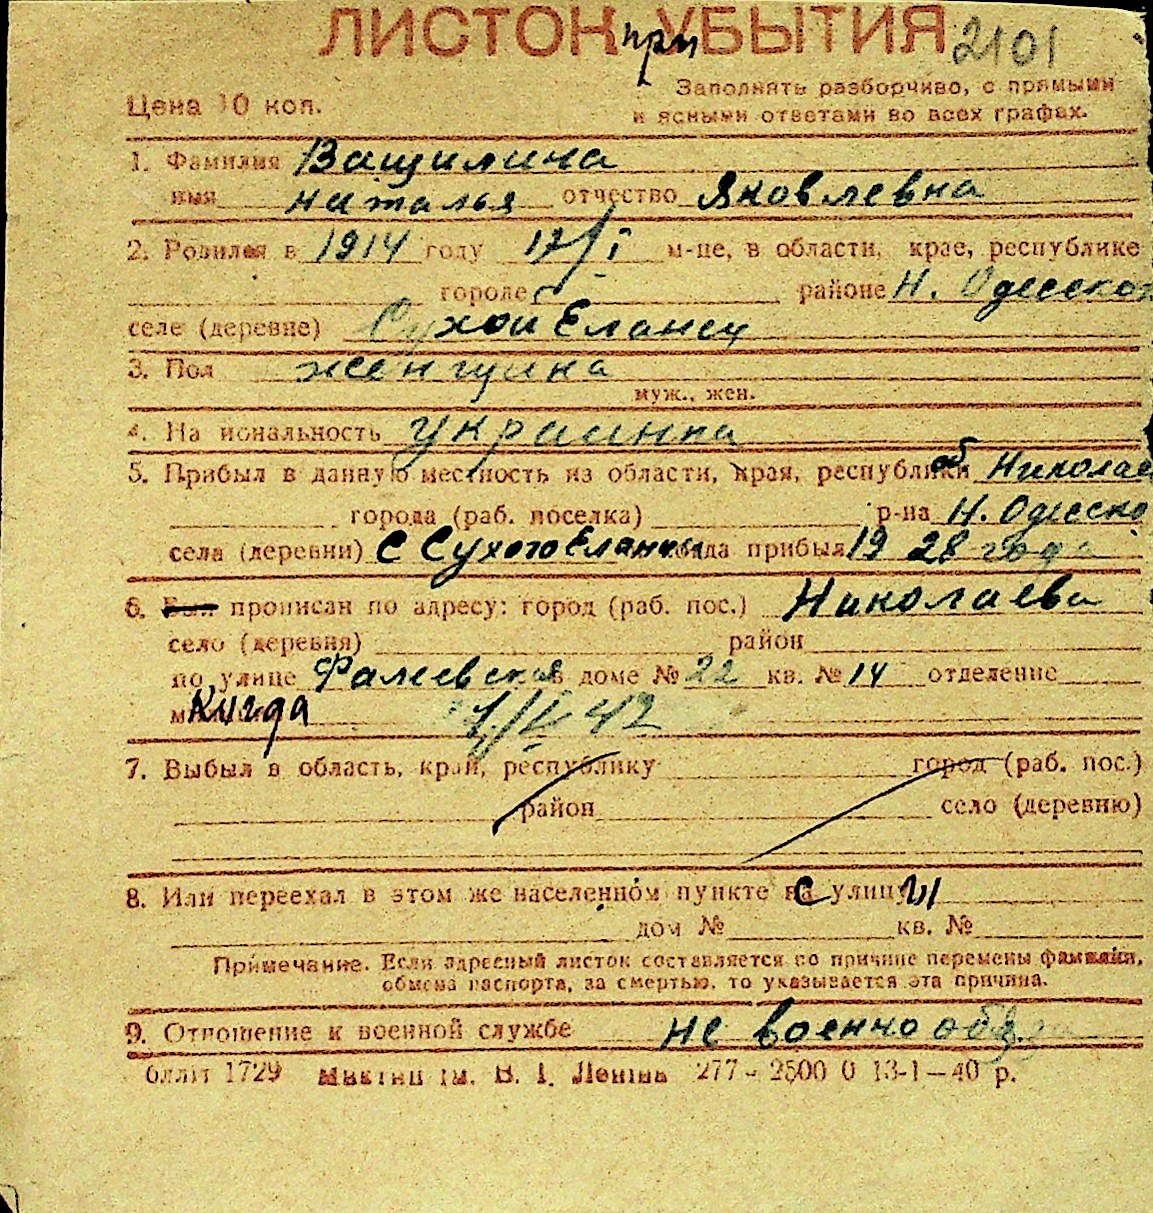 ЛИСТОК при УБЫТИЯ 2101
Заполнять разборчиво, с прямыми
Цена 10 коп.
и ясными ответами во всех графах.
1. Фамилия Ващилина
имя Наталья отчество Яковлевна
2. Родился в 1914 году 17/I м-це, в области, крае, республике
городе районе Н. Одесском
селе (деревне) Сухой Еланец
3. Пол женщина
муж., жен.
4. На иональность украинка
5. Прибыл в данную местность из области, края, республики об Николаев
города (раб. поселка) р-на Н. Одеско
села (деревни) с Сухого Еланца когда прибыл 1928 года
6. Был прописан по адресу: город (раб. пос.) Николаева
село (деревня) район
по улице Фалеевская в доме № 22 кв. № 14 отделение
42
7. Выбыл в область, край, республику город (раб. пос.)
район село (деревню)
8. Или переехал в этом же населенном пункте на улицу
дом № кв. №
Примечание. Если адресный листок составляется по причине перемены фамилии,
обмена паспорта, за смертью, то указывается эта причина.
9. Отношение к военной службе не военнообяз
1729 В. І. Леніна 277 – 2500 0 13-1—40 р.